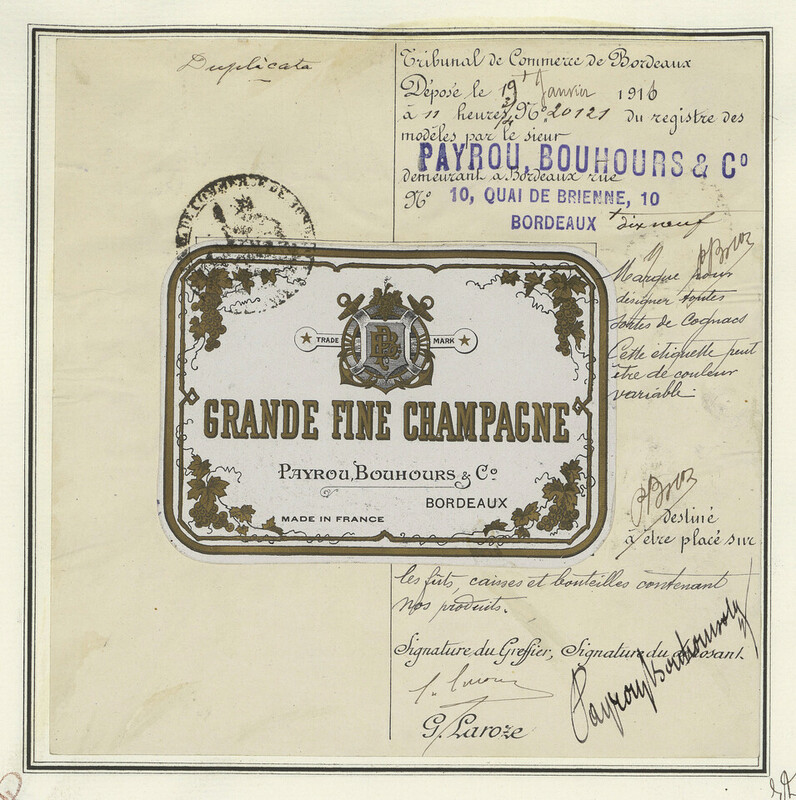 Duplicata
Tribunal de Commerce de Bordeaux
Déposé le 19 Janvier 1916
à 11 heures 3/4 No 20121 du registre des
modèles par le sieur
PAYROU, BOUHOURS & Co
demeurant à Bordeaux rue
No 10, QUAI DE BRIENNE, 10
BORDEAUX
dix neuf
Marque pour
désigner toutes
sortes de Cognacs
Cette étiquette peut
être de couleur
variable.
TRADE MARK
GRANDE FINE CHAMPAGNE
PAYROU, BOUHOURS & Co
BORDEAUX
MADE IN FRANCE
destiné
à être placé sur
les fûts, caisses et bouteilles contenant
nos produits.
Signature du Greffier, Signature du déposant.
G. Laroze